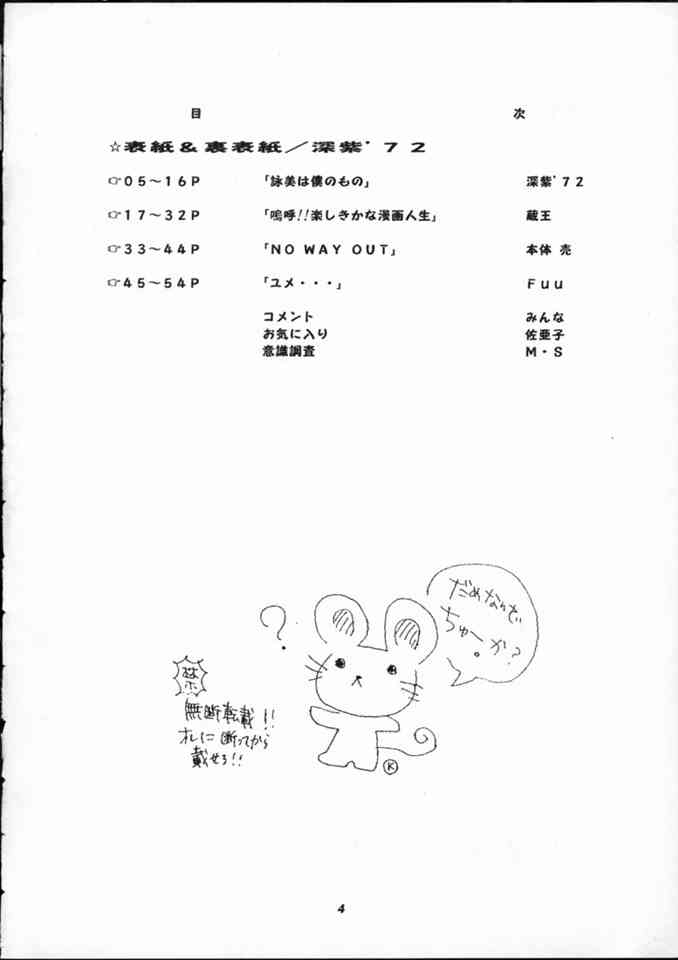 目 次
☆表紙＆裏表紙／深紫'７２
☞０５〜１６Ｐ 「詠美は僕のもの」 深紫'７２
☞１７〜３２Ｐ 「嗚呼!!楽しきかな漫画人生」 蔵王
☞３３〜４４Ｐ 「ＮＯ ＷＡＹ ＯＵＴ」 本体 売
☞４５〜５４Ｐ 「ユメ・・・」 Ｆｕｕ
コメント みんな
お気に入り 佐亜子
意識調査 Ｍ・Ｓ
だめなんで
ちゅーか?
?
禁
無断転載!!
オレに断ってから
載せろ!!
K
4